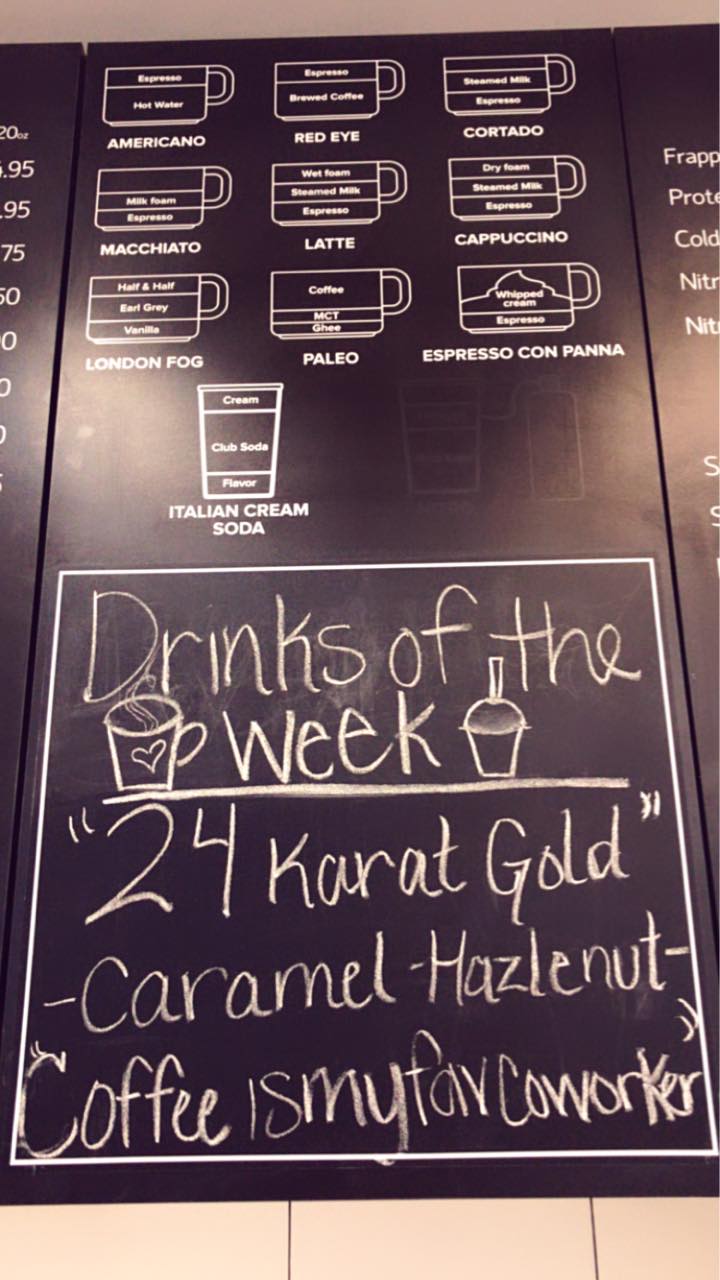 20oz
.95
.95
75
50
Espresso
Hot Water
AMERICANO
Espresso
Brewed Coffee
RED EYE
Steamed Milk
Espresso
CORTADO
Milk foam
Espresso
MACCHIATO
Wet foam
Steamed Milk
Espresso
LATTE
Dry foam
Steamed Milk
Espresso
CAPPUCCINO
Half & Half
Earl Grey
Vanilla
LONDON FOG
Coffee
MCT
Ghee
PALEO
Whipped
cream
Espresso
ESPRESSO CON PANNA
Cream
Club Soda
Flavor
ITALIAN CREAM
SODA
Frapp
Prote
Cold
Nitr
Nit
S
S
Drinks of the
week
"24 Karat Gold"
-Caramel-Hazlenut-
"Coffee is my fav coworker"